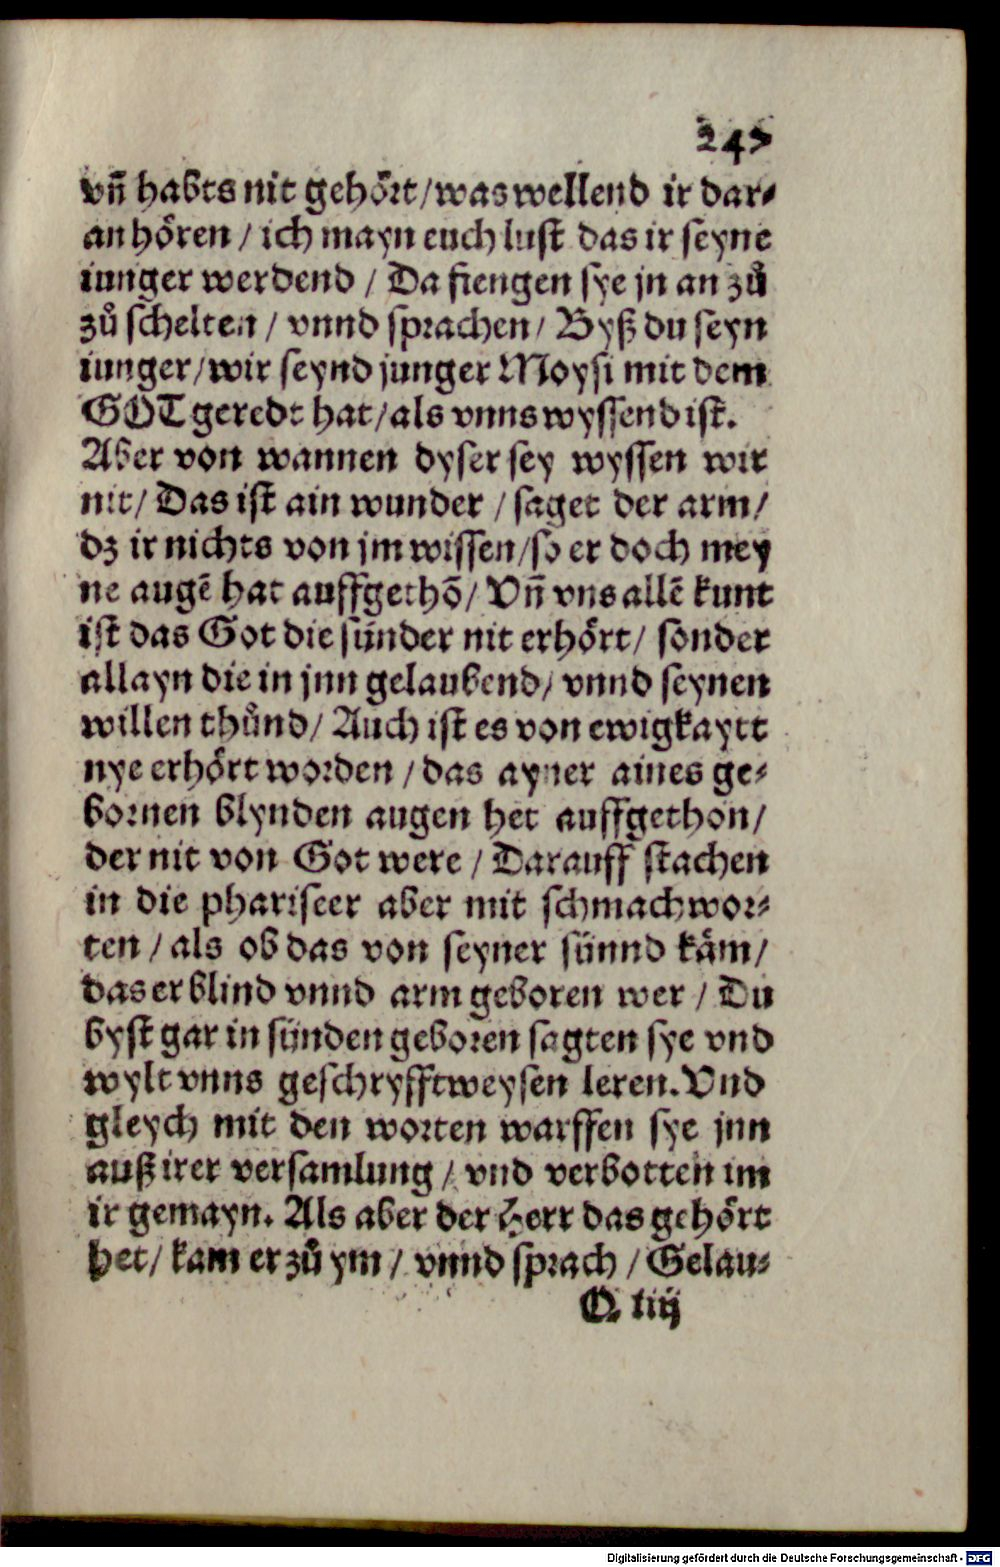 247
vñ habts nit gehört/was wellend ir dar⸗
an hören / ich mayn euch lust das ir seyne
iunger werdend / Da fiengen sye jn an zuͦ
zuͦ schelten / vnnd sprachen / Byß du seyn
iunger/wir seynd junger Moysi mit dem
GOT geredt hat/als vnns wyssend ist.
Aber von wannen dyser sey wyssen wir
nit/ Das ist ain wunder / saget der arm/
dz ir nichts von jm wissen/so er doch mey
ne augē hat auffgethō/ Vñ vns allē kunt
ist das Got die sünder nit erhört/ sonder
allayn die in jnn gelaubend/ vnnd seynen
willen thuͦnd/ Auch ist es von ewigkaytt
nye erhört worden / das ayner aines ge⸗
bornen blynden augen het auffgethon/
der nit von Got were / Darauff stachen
in die phariseer aber mit schmachwor⸗
ten / als ob das von seyner sünnd käm/
das er blind vnnd arm geboren wer / Du
byst gar in sünden geboren sagten sye vnd
wylt vnns geschryfftweysen leren. Vnd
gleych mit den worten warffen sye jnn
auß irer versamlung / vnd verbotten im
ir gemayn. Als aber der Herr das gehört
het/ kam er zuͦ ym / vnnd sprach / Gelau⸗
Q iiij
Digitalisierung gefördert durch die Deutsche Forschungsgemeinschaft - DFG